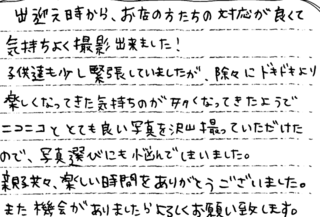 出迎え時から、お店の方たちの対応が良くて
気持ちよく撮影出来ました!
子供達も少し緊張していましたが、除々にドキドキより
楽しくなってきた気持ちのが多くなってきたようで
ニコニコととても良い写真を沢山撮っていただけた
ので、写真選びにも悩んでしまいました。
親子共々、楽しい時間をありがとうございました。
また機会がありましたらよろしくお願い致します。